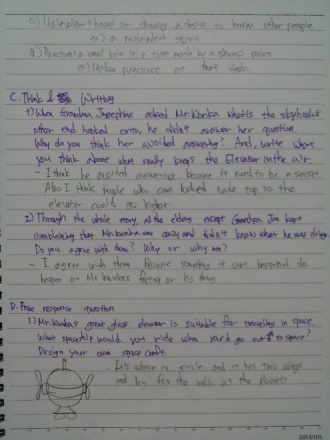 11) Malevolent : having or showing a desire to harm other people
ex) a malevolent spirit
12) Puncture : a small hole in a tyre made by a sharp point
ex) Make puncture at that desk.
C. Think & Writing
1) When Grandma Josephine asked Mr. Wonka what's the skyhook's
other end hooked onto, he didn't answer her question.
Why do you think he avoided answering? And, write what
you think about what really keeps the Elevator in the air.
- I think he avoided answering because it need to be a secret.
Also I think people who can't looked made top so the
elevator could go higher.
2) Through the whole story, all the elders except Grandpa Joe kept
complaining that Mr. Wonka was crazy and didn't know what he was doing.
Do you agree with them? Why or why not?
- I agree with them. Because something it can't happened do
happen at Mr. Wonka's factory or his things.
D. Free response question
1) Mr. Wonka's great glass elevator is suitable for traveling in space.
What spaceship would you ride when you'd go out to space?
Design your own space craft.
It's shape is circle and it has two wings
and leg for the walk at the planets